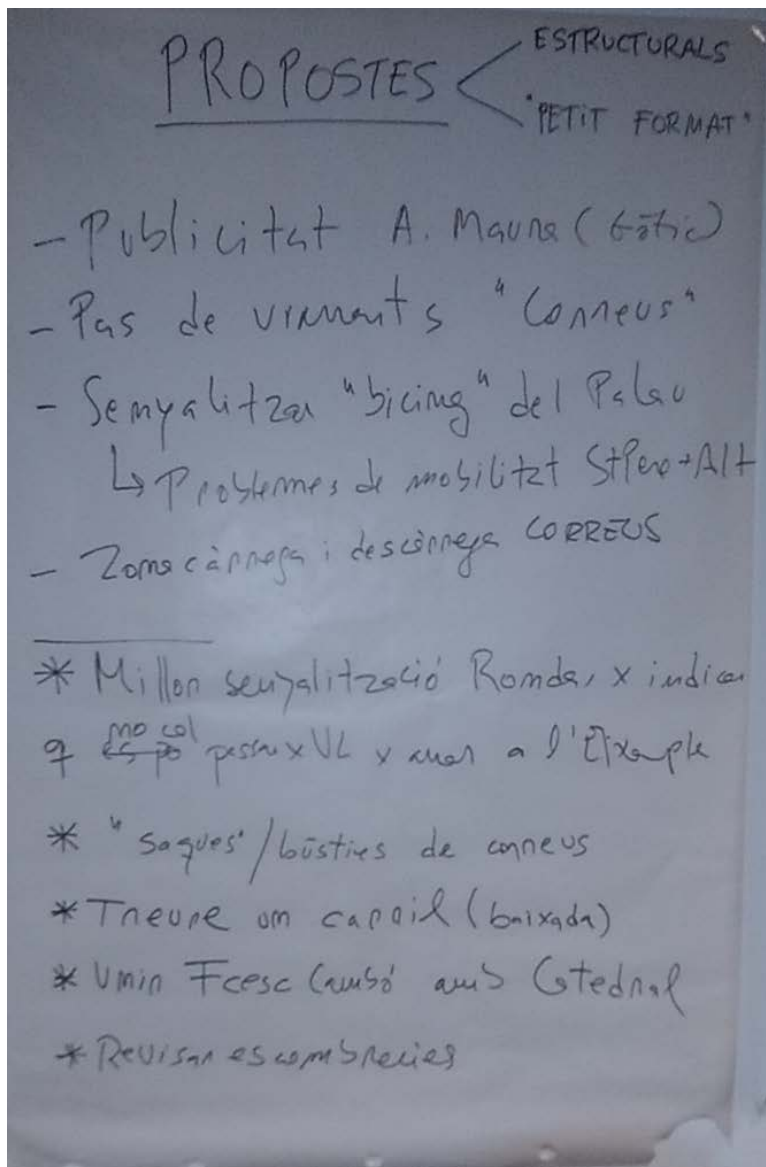 PROPOSTES
ESTRUCTURALS
"PETIT FORMAT"
- Publicitat A. Maura (Gòtic)
- Pas de vianants "Correus"
- Senyalitzar "bicing" del Palau
↳ Problemes de mobilitat St Pere + Alt
- Zona càrrega i descàrrega CORREUS
* Millor senyalització Rondas x indicar
q no cal passar x VL x anar a l'Eixample
* "Saques"/bústies de correus
* Treure un carril (baixada)
* Unir Fcesc Cambó amb Catedral
* Revisar escombreries